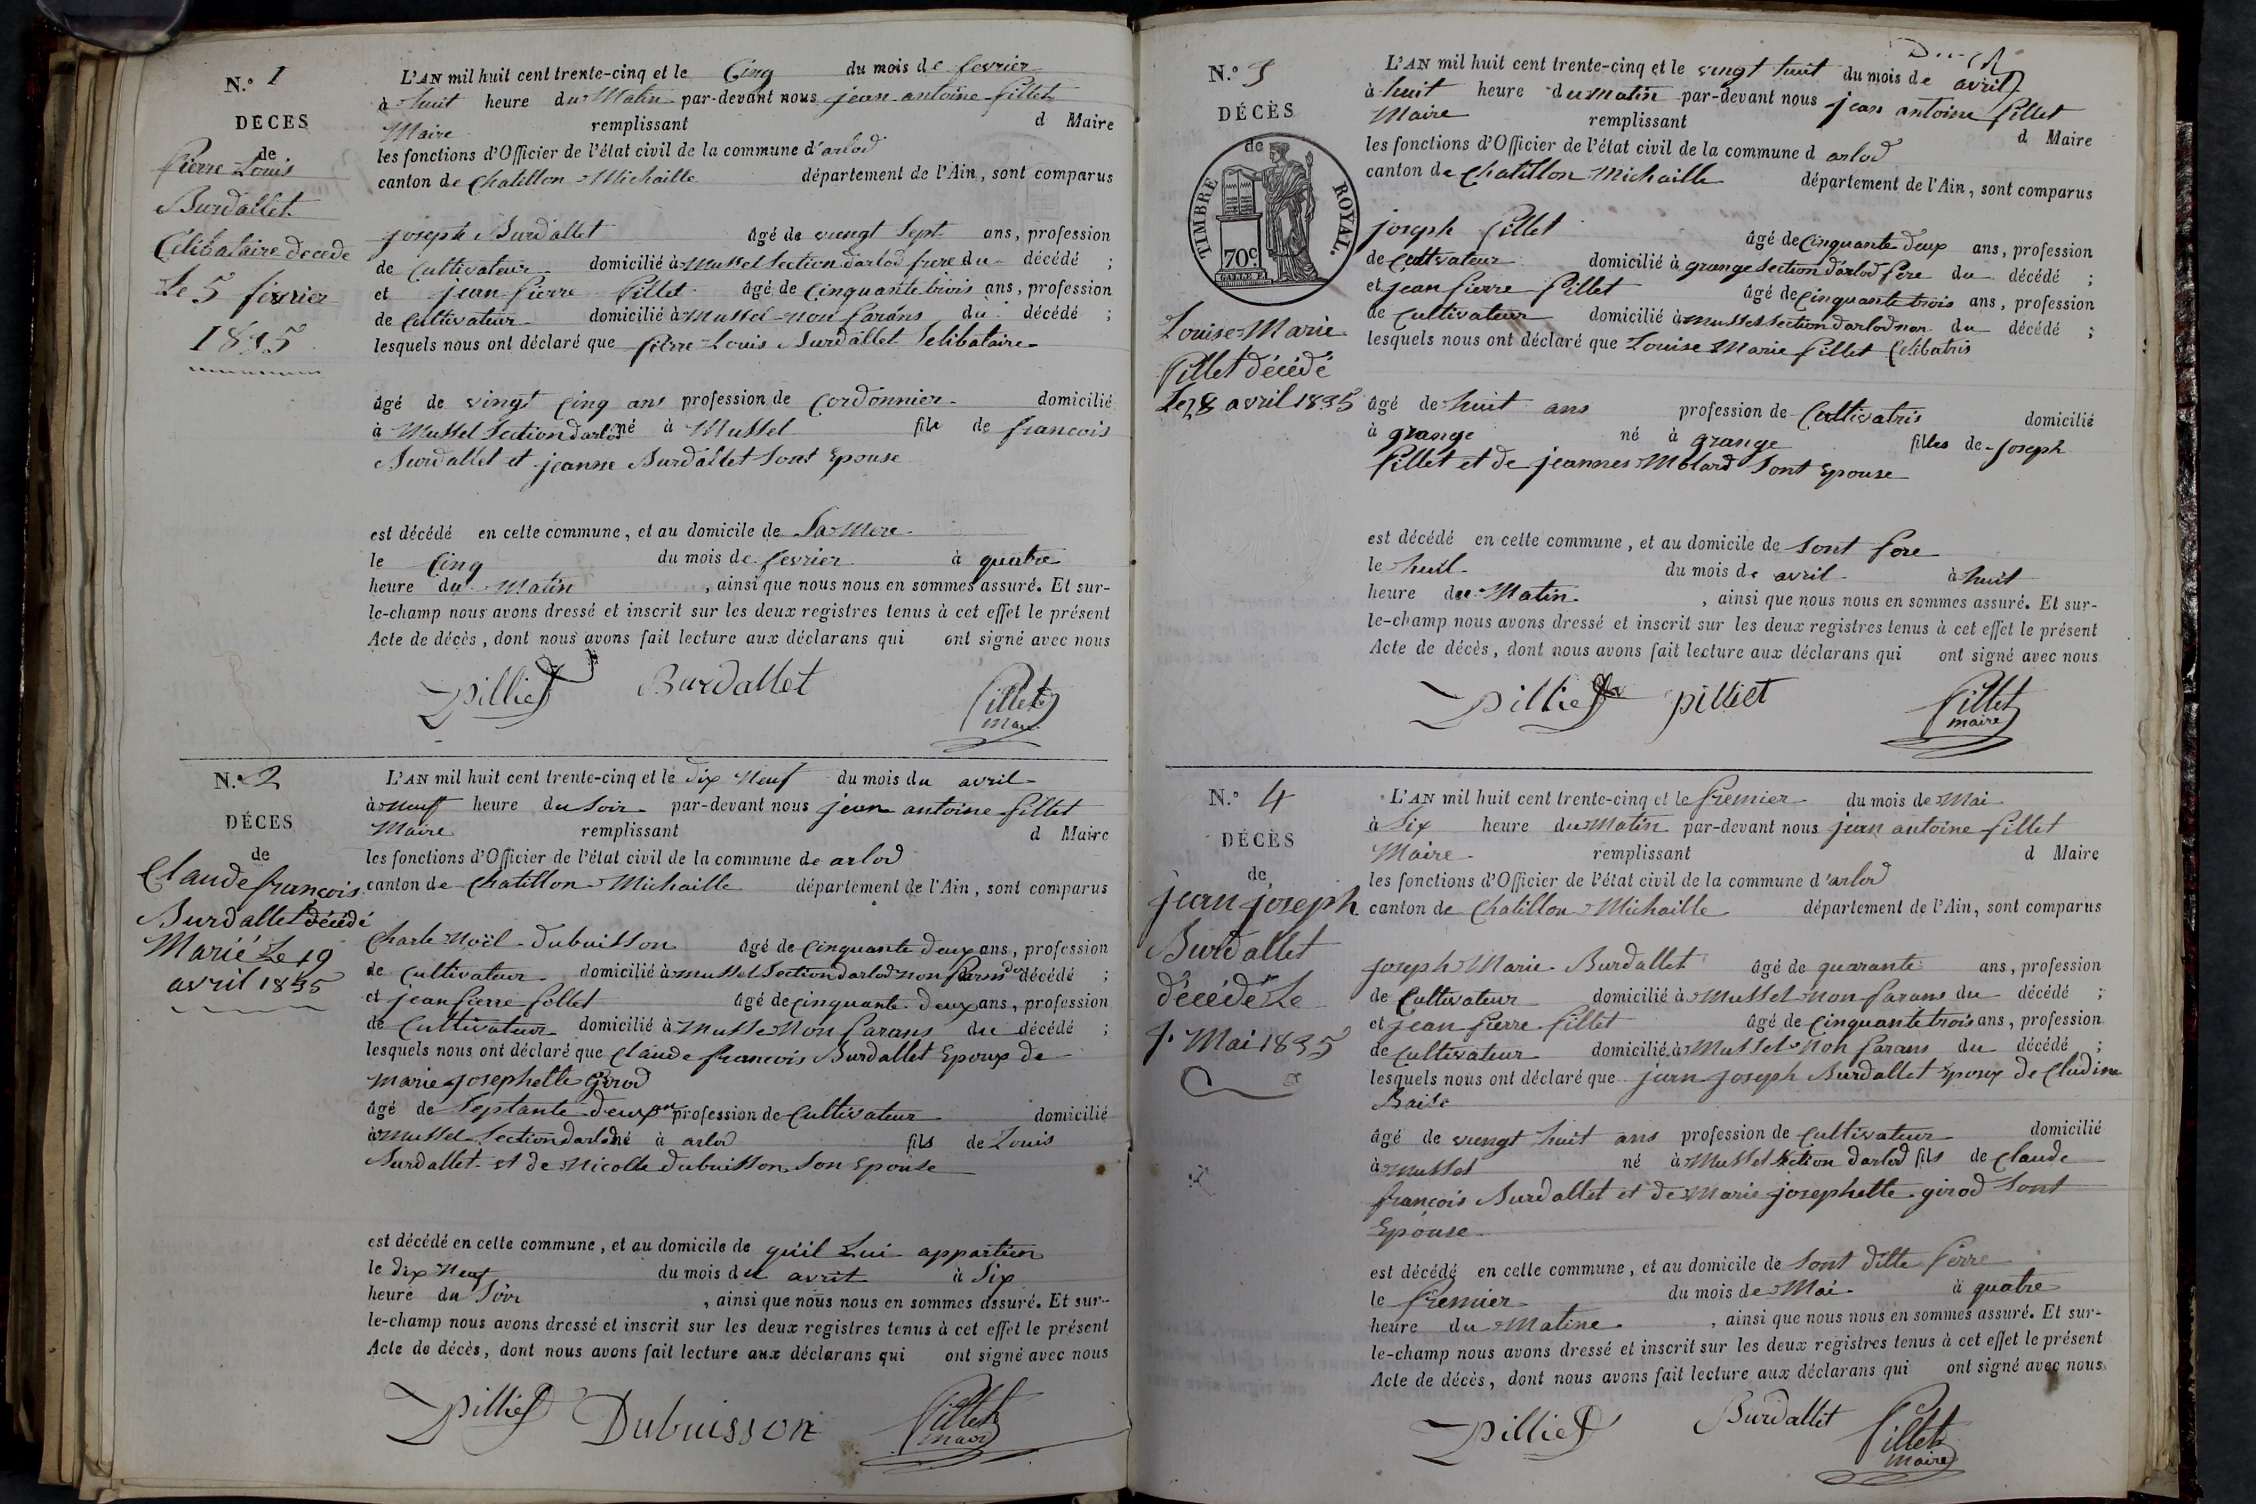 N.° 1
DÉCES
de
Pierre Louis
Burdallet
Célibataire décédé
Le 5 février
1835
L'AN mil huit cent trente-cinq et le Cinq du mois de fevrier
à huit heure du Matin par-devant nous jean antoine pillet
Maire remplissant d Maire
les fonctions d'Officier de l'état civil de la commune d'arlod
canton de Chatillon Michaille département de l'Ain, sont comparus
joseph Burdallet âgé de vuengt Sept ans, profession
de Cultivateur domicilié à Mussel Section d'arlod frere du décédé ;
et jean pierre Pillet âgé de Cinquante trois ans, profession
de Cultivateur domicilié à Mussel non parans du décédé ;
lesquels nous ont déclaré que pierre Louis Burdallet Selibataire
âgé de vingt Cinq ans profession de Cordonnier domicilié
à Mussel Section darlod né à Mussel fils de francois
Burdallet et jeanne Burdallet Sont Epouse
est décédé en cette commune, et au domicile de Sa Mere
le Cinq du mois de fevrier à quatre
heure du Matin, ainsi que nous nous en sommes assuré. Et sur-
le-champ nous avons dressé et inscrit sur les deux registres tenus à cet effet le présent
Acte de décès, dont nous avons fait lecture aux déclarans qui ont signé avec nous
Pilliet Burdallet Pillet
maire
N.° 2
DÉCES
de
Claude françois
Burdallet décédé
Marié Le 19
avril 1835
L'AN mil huit cent trente-cinq et le dix Neuf du mois du avril
à Neuf heure du Soir par-devant nous jean antoine pillet
Maire remplissant d Maire
les fonctions d'Officier de l'état civil de la commune de arlod
canton de Chatillon Michaille département de l'Ain, sont comparus
Charle Noël dubuisson âgé de Cinquante deux ans, profession
de Cultivateur domicilié à Mussel Section darlod non parans du décédé ;
et jean pierre pillet âgé de Cinquante deux ans, profession
de Cultivateur domicilié à Musse Non parans du décédé ;
lesquels nous ont déclaré que Claude francois Burdallet Epoux de
Marie josephette Girod
âgé de Septante deux an profession de Cultivateur domicilié
à Mussel Section darlod né à arlod fils de Louis
Burdallet et de Nicolle dubuisson Son Epouse
est décédé en cette commune, et au domicile de qu'il Lui appartien
le dix Neuf du mois du avril à Six
heure du Soir, ainsi que nous nous en sommes assuré. Et sur-
le-champ nous avons dressé et inscrit sur les deux registres tenus à cet effet le présent
Acte de décès, dont nous avons fait lecture aux déclarans qui ont signé avec nous
Pilliet Dubuisson Pillet
maire
N.° 3
DÉCÈS
de
TIMBRE ROYAL.
70c
Louise Marie
Pillet décédé
Le 28 avril 1835
L'AN mil huit cent trente-cinq et le vingt huit du mois de avril
à huit heure du matin par-devant nous jean antoine pillet
Maire remplissant d Maire
les fonctions d'Officier de l'état civil de la commune d arlod
canton de Chatillon Michaille département de l'Ain, sont comparus
joseph Pillet âgé de Cinquante deux ans, profession
de Cultivateur domicilié à grange Section d'arlod pere du décédé ;
et jean pierre Pillet âgé de Cinquante trois ans, profession
de Cultivateur domicilié à Mussel Section darlod non du décédé ;
lesquels nous ont déclaré que Louise Marie pillet Célibatris
âgé de huit ans profession de Cultivatris domicilié
à grange né à grange filles de joseph
Pillet et de jeannes Molard Sont Epouse
est décédé en cette commune, et au domicile de Sont pere
le huit du mois de avril à huit
heure du Matin, ainsi que nous nous en sommes assuré. Et sur-
le-champ nous avons dressé et inscrit sur les deux registres tenus à cet effet le présent
Acte de décès, dont nous avons fait lecture aux déclarans qui ont signé avec nous
Pilliet pilliet Pillet
maire
N.° 4
DÉCÈS
de
jean joseph
Burdallet
décédé Le
1. Mai 1835
L'AN mil huit cent trente-cinq et le premier du mois de Mai
à Six heure du Matin par-devant nous jean antoine pillet
Maire remplissant d Maire
les fonctions d'Officier de l'état civil de la commune d'arlod
canton de Chatillon Michaille département de l'Ain, sont comparus
joseph Marie Burdallet âgé de quarante ans, profession
de Cultivateur domicilié à Mussel non parans du décédé ;
et jean pierre pillet âgé de Cinquante trois ans, profession
de Cultivateur domicilié à Mussel Non parans du décédé ;
lesquels nous ont déclaré que jean joseph Burdallet Epoux de Cludine
Baise
âgé de vuengt huit ans profession de Cultivateur domicilié
à Mussel né à Mussel Section darlod fils de Claude
françois Burdallet et de Marie josephette girod Sont
Epouse
est décédé en cette commune, et au domicile de Sont ditte Perre
le premier du mois de Mai à quatre
heure du Matine, ainsi que nous nous en sommes assuré. Et sur-
le-champ nous avons dressé et inscrit sur les deux registres tenus à cet effet le présent
Acte de décès, dont nous avons fait lecture aux déclarans qui ont signé avec nous
Pilliet Burdallet Pillet
maire